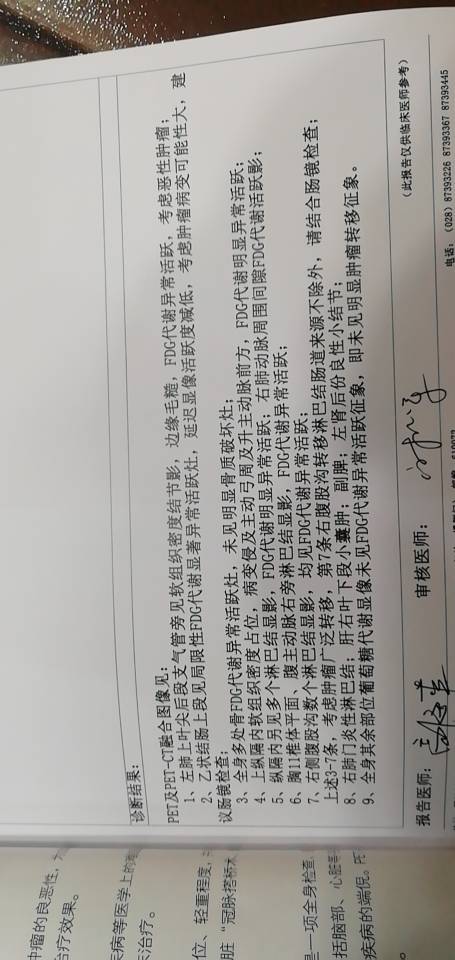 诊断结果：
PET及PET-CT融合图像见：
1、左肺上叶尖后段支气管旁见软组织密度结节影，边缘毛糙，FDG代谢异常活跃，考虑恶性肿瘤；
2、乙状结肠上段见局限性FDG代谢显著异常活跃灶，延迟显像活跃度减低，考虑肿瘤病变可能性大，建
议肠镜检查；
3、全身多处骨FDG代谢异常活跃灶，未见明显骨质破坏灶；
4、上纵隔内软组织密度占位，病变侵及主动弓周及升主动脉前方，FDG代谢明显异常活跃；
5、纵隔内另见多个淋巴结显影，FDG代谢明显异常活跃；右肺动脉周围间隙FDG代谢活跃影；
6、胸11椎体平面、腹主动脉右旁淋巴结显影，FDG代谢异常活跃；
7、右侧腹股沟数个淋巴结显影，均见FDG代谢异常活跃；
上述3-7条，考虑肿瘤广泛转移，第7条右腹股沟转移淋巴结肠道来源不除外，请结合肠镜检查；
8、右肺门炎性淋巴结；肝右叶下段小囊肿；副脾；左肾后份良性小结节；
9、全身其余部位葡萄糖代谢显像未见FDG代谢异常活跃征象，即未见明显肿瘤转移征象。
（此报告仅供临床医师参考）
报告医师：
审核医师：
电话：（028）87393226 87393367 87393445
肿瘤的良恶性，
治疗效果。
疾病等医学上的难
床治疗。
位、轻重程度，
脏“冠脉搭桥术
是一项全身检查，
括脑部、心脏等
疾病的端倪。PE